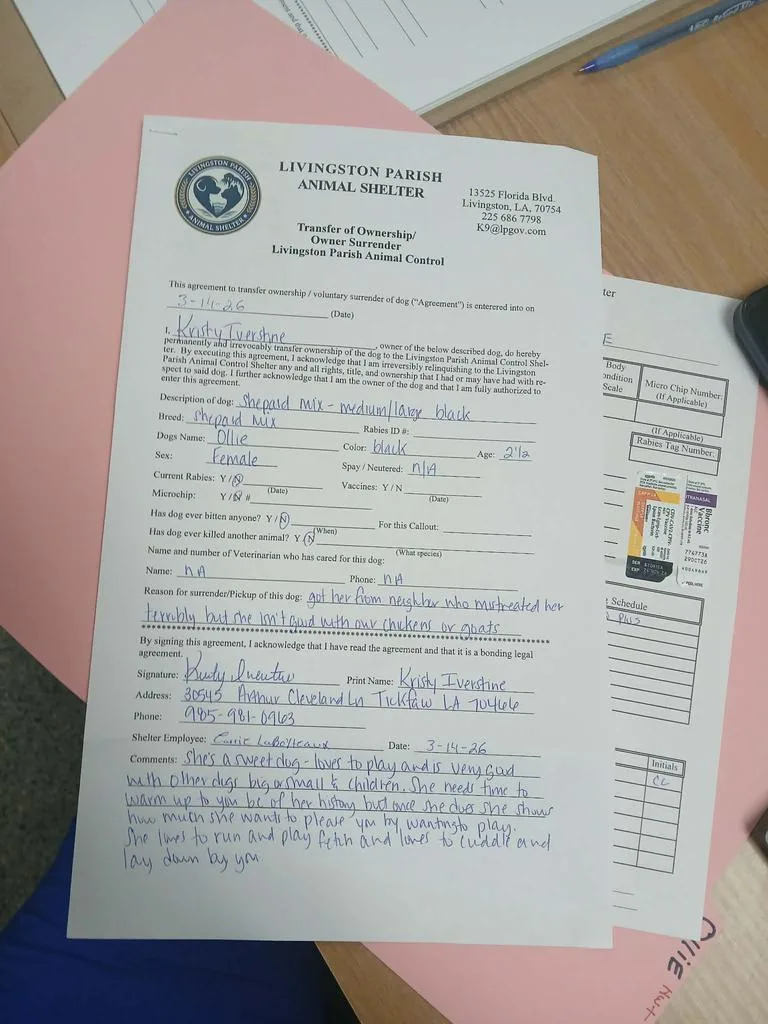 LIVINGSTON PARISH
ANIMAL SHELTER
LIVINGSTON PARISH
ANIMAL SHELTER
13525 Florida Blvd.
Livingston, LA, 70754
225 686 7798
K9@lpgov.com
Transfer of Ownership/
Owner Surrender
Livingston Parish Animal Control
This agreement to transfer ownership / voluntary surrender of dog ("Agreement") is enterered into on
3-14-26 (Date)
I, Kristy Iverstine, owner of the below described dog, do hereby
permanently and irrevocably transfer ownership of the dog to the Livingston Parish Animal Control Shel-
ter. By executing this agreement, I acknowledge that I am irreversibly relinquishing to the Livingston
Parish Animal Control Shelter any and all rights, title, and ownership that I had or may have had with re-
spect to said dog. I further acknowledge that I am the owner of the dog and that I am fully authorized to
enter this agreement.
Description of dog: Shepard mix - medium/large black
Breed: Shepard Mix Rabies ID #:
Dogs Name: Ollie Color: black Age: 2 1/2
Sex: Female Spay / Neutered: n/A
Current Rabies: Y / N (Date) Vaccines: Y / N (Date)
Microchip: Y / N #
Has dog ever bitten anyone? Y / N (When) For this Callout:
Has dog ever killed another animal? Y N (What species)
Name and number of Veterinarian who has cared for this dog:
Name: nA Phone: nA
Reason for surrender/Pickup of this dog: got her from neighbor who mistreated her
terribly but she isn't good with our chickens or goats
By signing this agreement, I acknowledge that I have read the agreement and that it is a bonding legal
agreement.
Signature: Print Name: Kristy Iverstine
Address: 30545 Arthur Cleveland Ln Tickfaw LA 70466
Phone: 985-981-0963
Shelter Employee: Carrie LaBoyteaux Date: 3-14-26
Comments: She's a sweet dog - loves to play and is very good
with other dogs big or small & children. She needs time to
warm up to you bc of her history but once she does she shows
how much she wants to please you by wanting to play.
She loves to run and play fetch and loves to cuddle and
lay down by you.
ter
E
Body
ondition
Scale
Micro Chip Number:
(If Applicable)
(If Applicable)
Rabies Tag Number:
INTRANASAL
Bbronc
Vaccine
776773A
29OCT26
Schedule
Plus
Initials
CL
Ollie